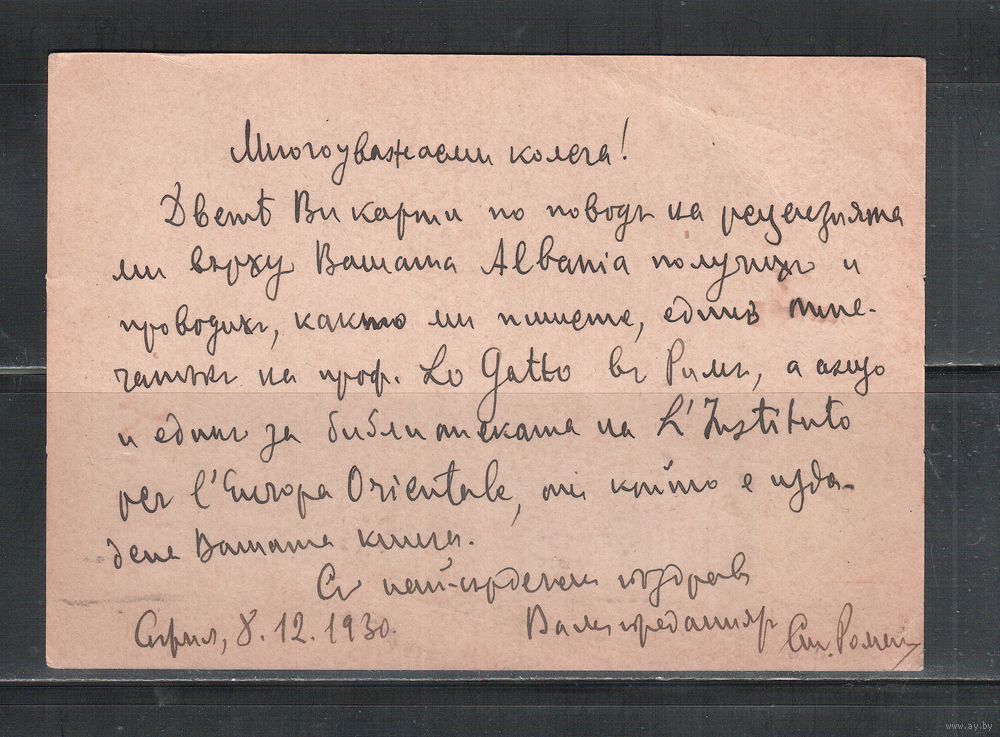 Многоуважаеми колега!
Дветѣ Ви карти по поводъ на рецензията
ми върху Вашата Albania получихъ и
проводихъ, както ми пишете, единъ отпе-
чатъкъ на проф. Lo Gatto въ Римъ, а също
и единъ за библиотеката на L'Instituto
per l'Europa Orientale, отъ който е изда-
дена Вашата книга.
Съ най-сърдеченъ поздравъ
Вашъ преданиятъ
София, 8.12.1930. Ст. Роман
www.ay.by